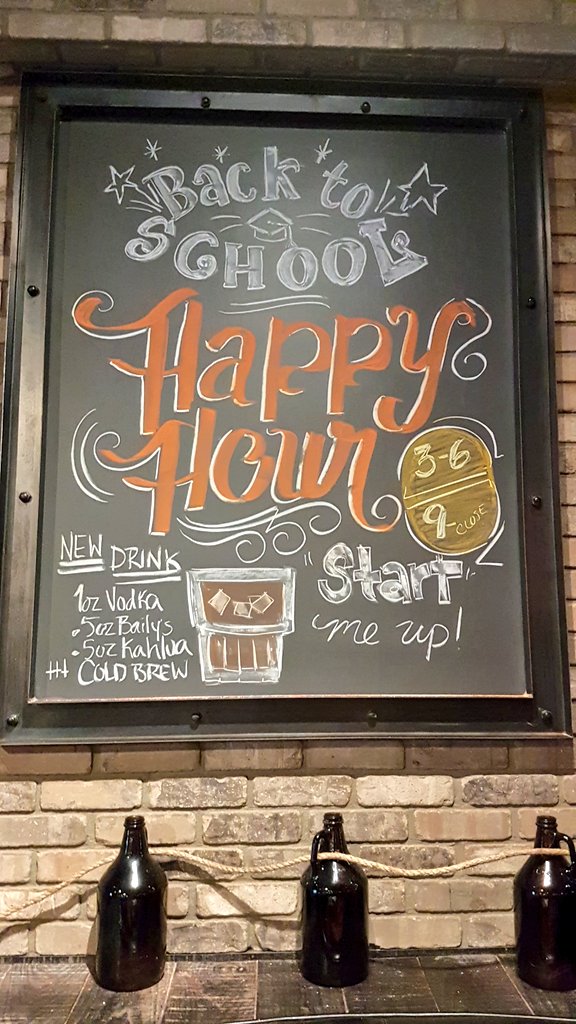 Back to
SCHOOL
Happy
Hour
3-6
9-CLOSE
NEW DRINK
1oz Vodka
.5oz Bailys
.5oz Kahlua
+++ COLD BREW
"Start"
me up!